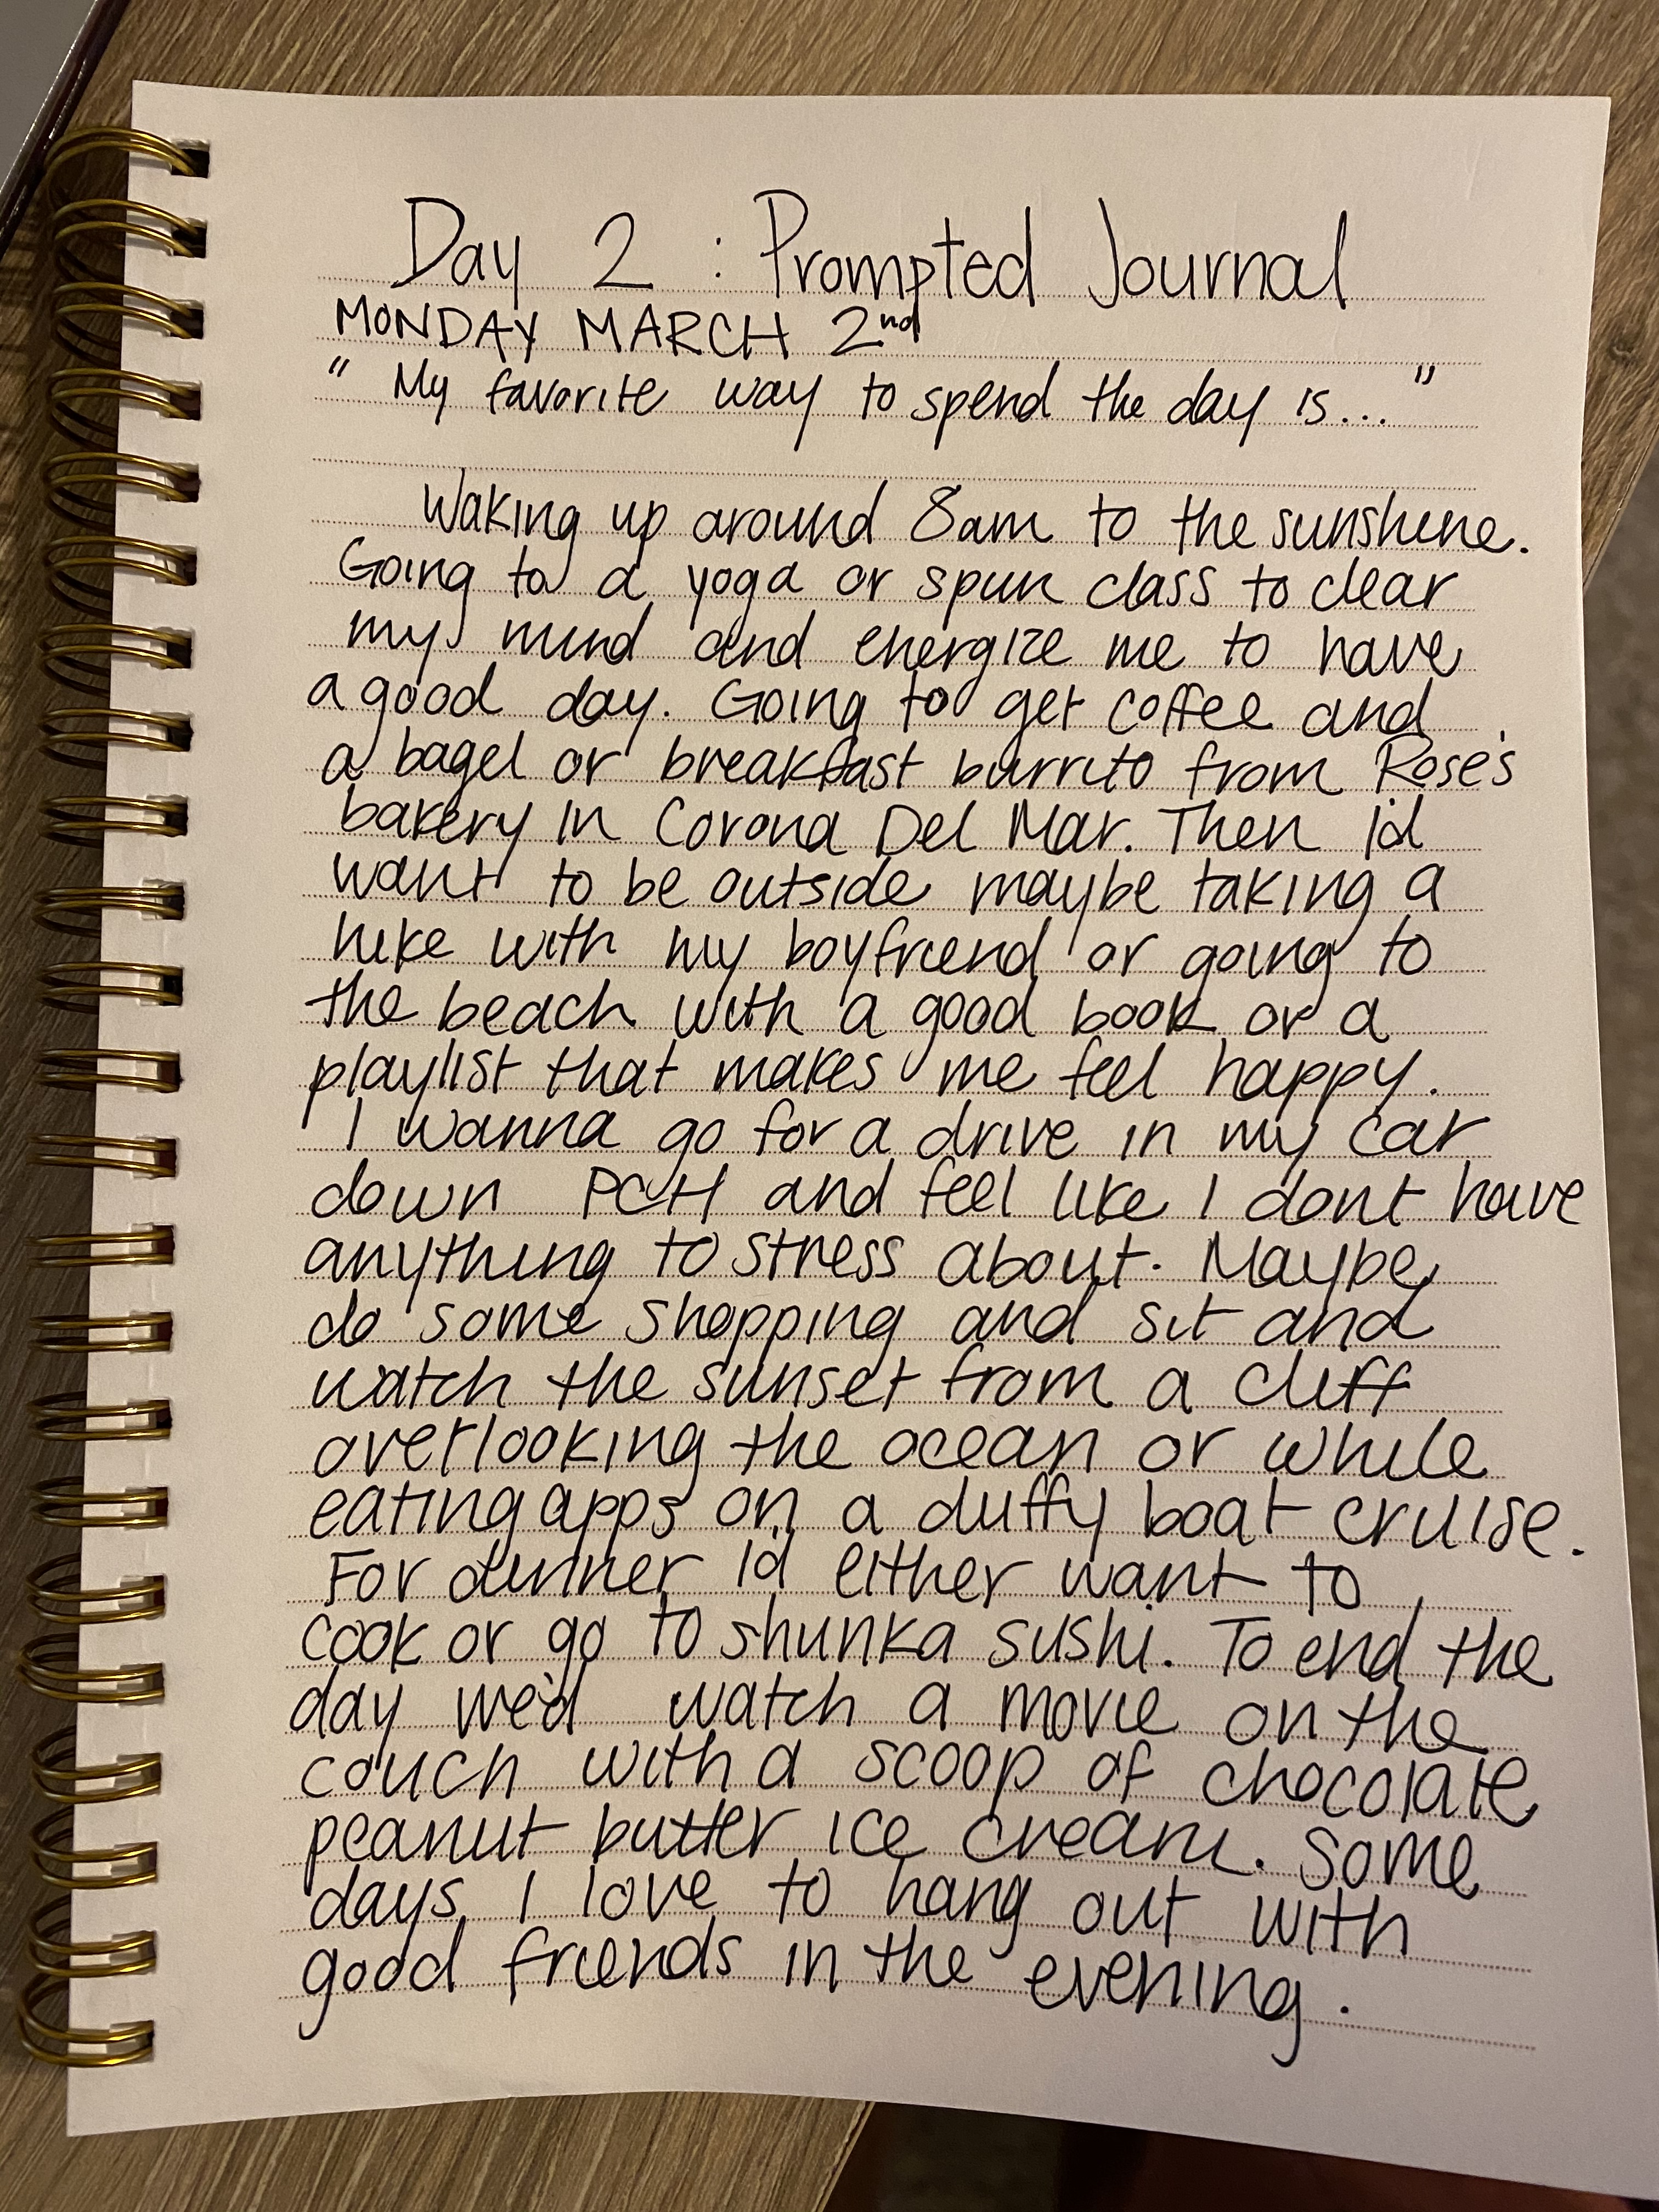 Day 2 : Prompted Journal
MONDAY MARCH 2nd
" My favorite way to spend the day is... "
Waking up around 8am to the sunshine.
Going to a yoga or spin class to clear
my mind and energize me to have
a good day. Going to get coffee and
a bagel or breakfast burrito from Rose's
bakery in Corona Del Mar. Then i'd
want to be outside maybe taking a
hike with my boyfriend or going to
the beach with a good book or a
playlist that makes me feel happy.
I wanna go for a drive in my car
down PCH and feel like I dont have
anything to stress about. Maybe
do some shopping and sit and
watch the sunset from a cliff
overlooking the ocean or while
eating apps on a duffy boat cruise.
For dinner i'd either want to
cook or go to shunka sushi. To end the
day we'd watch a movie on the
couch with a scoop of chocolate
peanut butter ice cream. Some
days I love to hang out with
good friends in the evening.